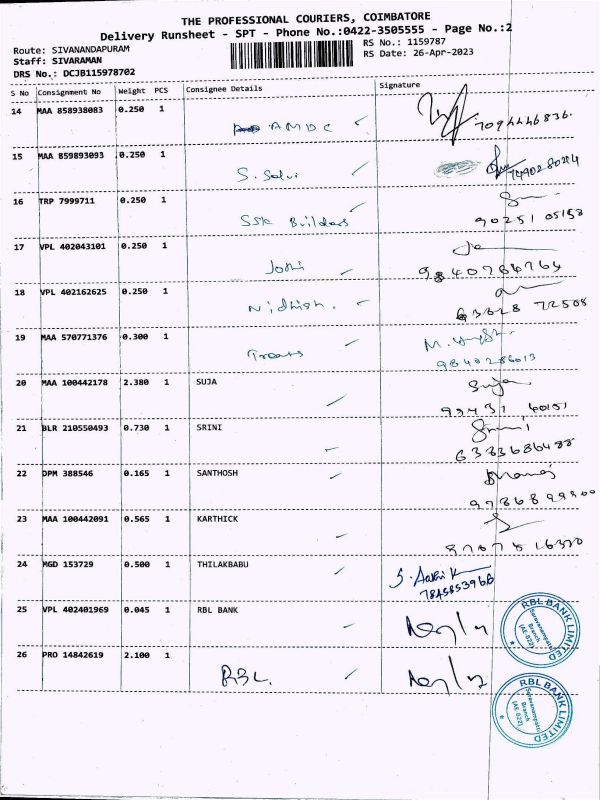 THE PROFESSIONAL COURIERS, COIMBATORE
Delivery Runsheet - SPT - Phone No.:0422-3505555 - Page No.:2
Route: SIVANANDAPURAM
Staff: SIVARAMAN
DRS No.: DCJB115978702
RS No.: 1159787
RS Date: 26-Apr-2023
S No Consignment No Weight PCS Consignee Details Signature
14 MAA 858938083 0.250 1 AMDC 7094446836.
15 MAA 859893093 0.250 1 S. Selvi
16 TRP 7999711 0.250 1 SSK Builders 90251 05158
17 VPL 402043101 0.250 1 Joshi 9840784764
18 VPL 402162625 0.250 1 Nidhish. 63628 72508
19 MAA 570771376 0.300 1 9840286013
20 MAA 100442178 2.380 1 SUJA Suja 99431 40151
21 BLR 210550493 0.730 1 SRINI Srini 6383686488
22 DPM 388546 0.165 1 SANTHOSH
23 MAA 100442091 0.565 1 KARTHICK
24 MGD 153729 0.500 1 THILAKBABU 7845853966
25 VPL 402401969 0.045 1 RBL BANK
RBL BANK LIMITED
Saravanampatti
Branch
(AE-022)
26 PRO 14842619 2.100 1 RBL.
RBL BANK LIMITED
Saravanampatti
Branch
(AE-022)